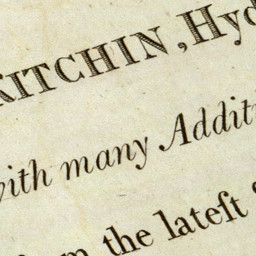 KITCHIN, Hyd
with many Additi
from the lateſt